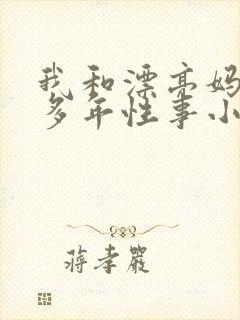 我和漂亮妈
多年性事小
蒋孝严